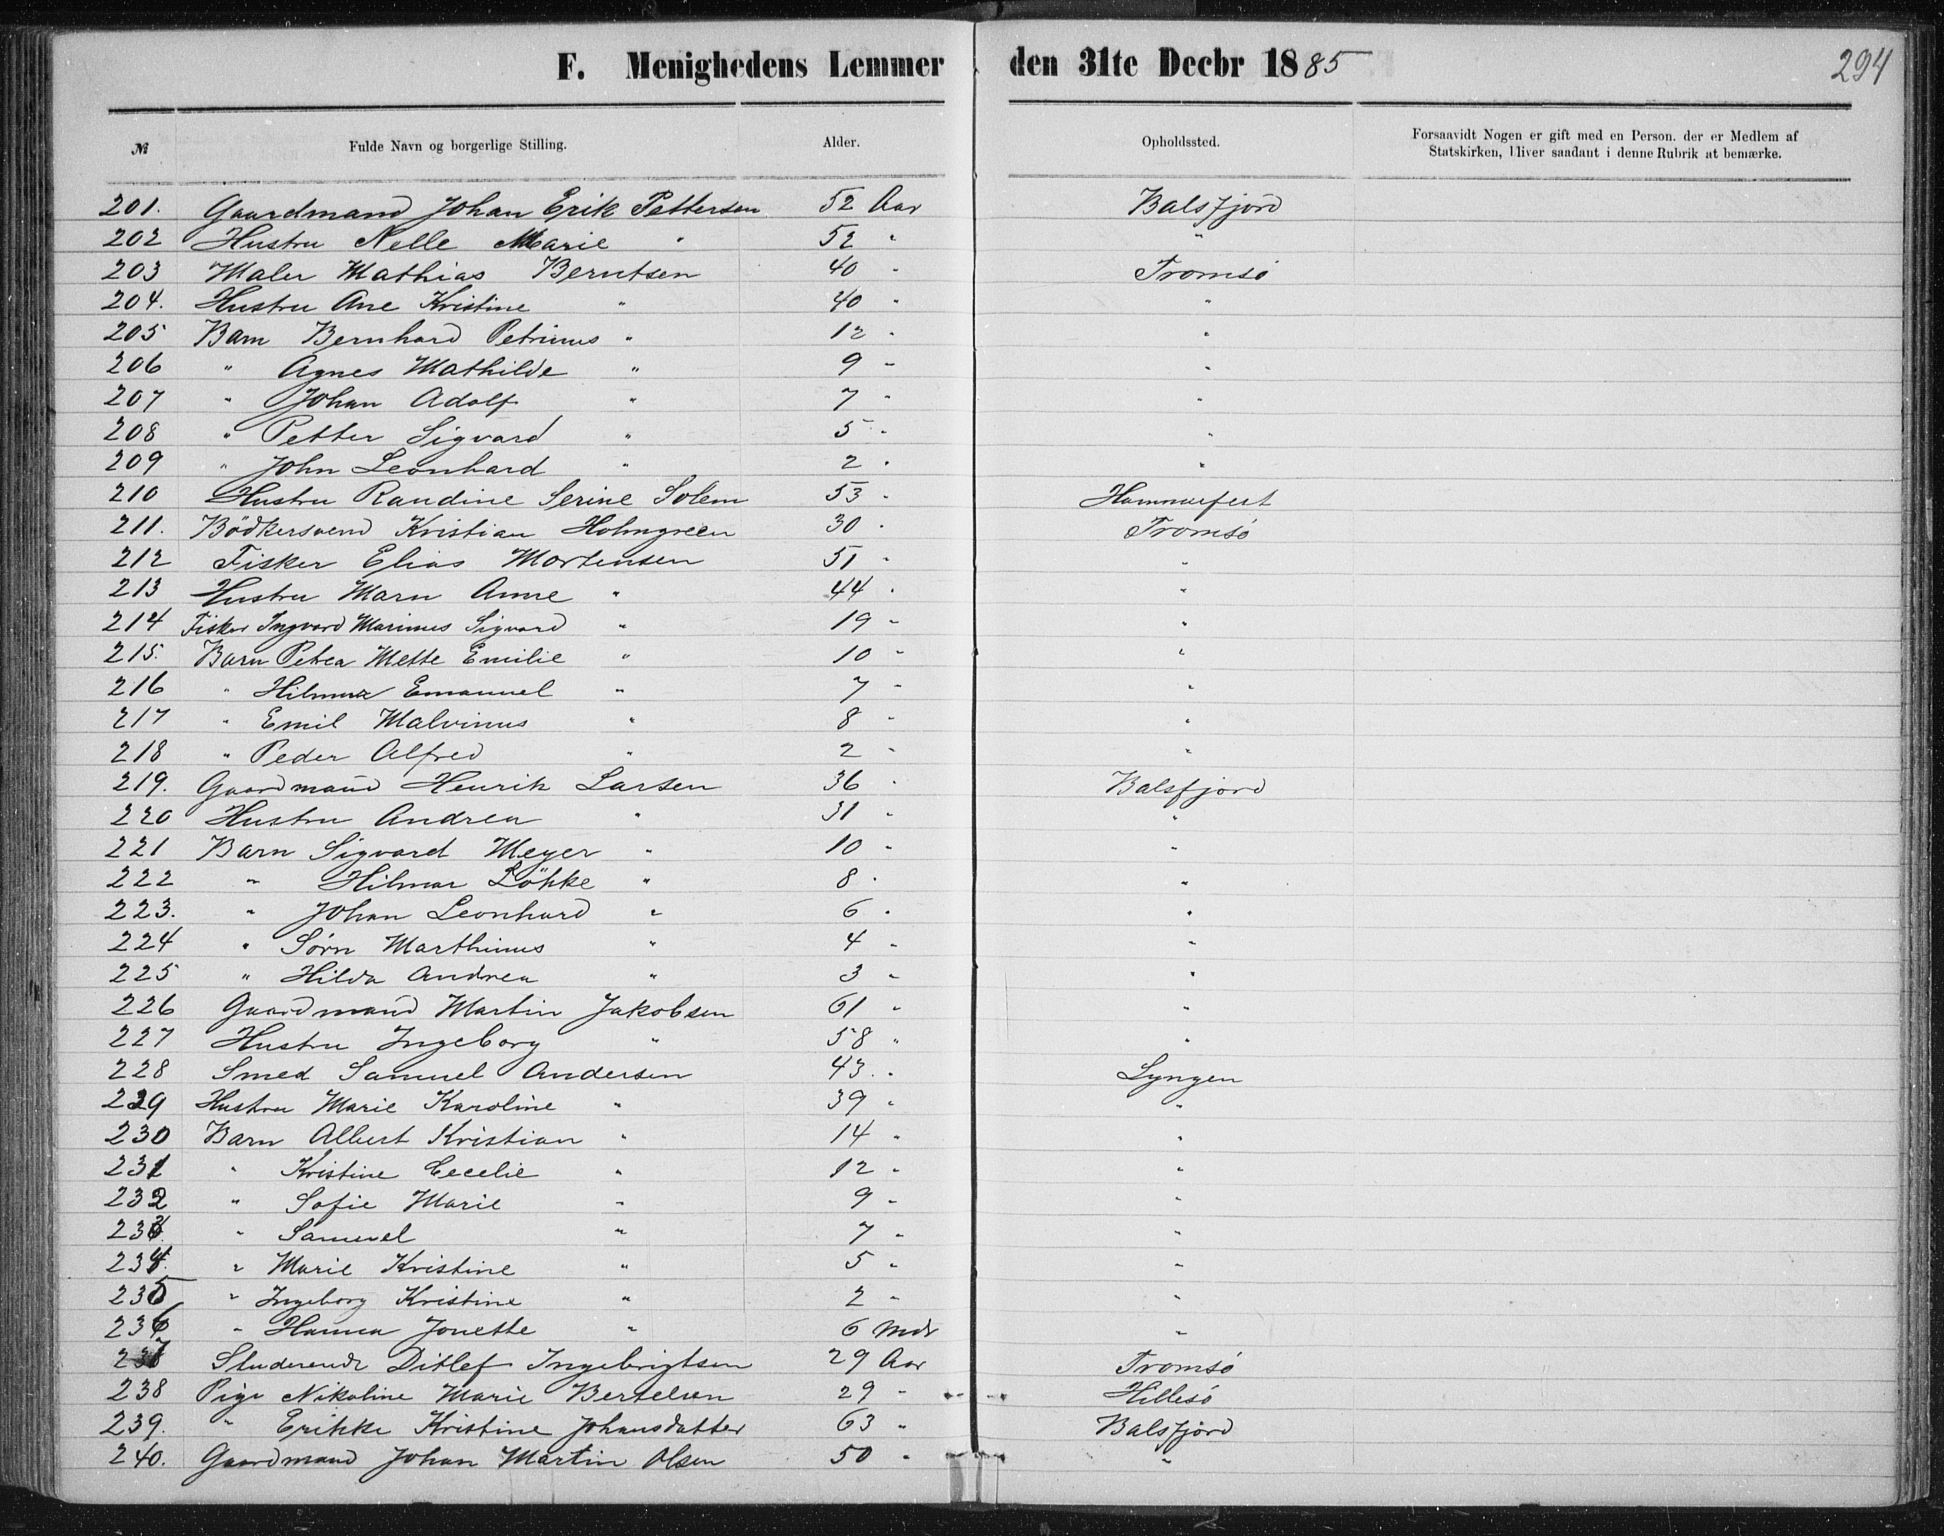 F. Menighedens Lemmer den 31te Decbr 1885 294
№ Fulde Navn og borgerlige Stilling. Alder. Opholdssted. Forsaavidt Nogen er gift med en Person, der er Medlem af Statskirken, bliver saadant i denne Rubrik at bemærke.
201. Gaardmand Johan Erik Pettersen 52 Aar Balsfjord
202 Hustru Nelle Marie " 52 " "
203 Maler Mathias Berntsen 40 " Tromsö
204. Hustru Ane Kristine " 40 " "
205 Barn Bernhard Petrinus " 12 " "
206 " Agnes Mathilde " 9 " "
207 " Johan Adolf " 7 " "
208 " Petter Sigvard " 5 " "
209 " John Leonhard " 2 " "
210 Hustru Randine Serine Solem 53 " Hammerfest
211. Bödkersvend Kristian Holmgreen 30 " Tromsö
212 Fisker Elias Mortensen 51 " "
213 Hustru Marn Anne " 44 " "
214 Fisker Ingvard Marinus Sigvard " 19 " "
215. Barn Petrea Mette Emilie " 10 " "
216 " Hilmar Emanuel " 7 " "
217 " Emil Malvinus " 8 " "
218 " Peder Alfred " 2 " "
219. Gaardmand Henrik Larsen 36 " Balsfjord
220 Hustru Andrea " 31 " "
221 Barn Sigvard Meyer " 10 " "
222 " Hilmar Lökke " 8 " "
223. " Johan Leonhard " 6 " "
224 " Sörn Marthinus " 4 " "
225 " Hilda Andrea " 3 " "
226 Gaardmand Martin Jakobsen 61 " "
227 Hustru Ingeborg " 58 " "
228 Smed Samuel Andersen 43 " Lyngen
229 Hustru Marie Karoline " 39 " "
230 Barn Albert Kristian " 14 " "
231 " Kristine Cecelie " 12 " "
232 " Sofie Marie " 9 " "
233 " Samuel " 7 " "
234. " Marie Kristine " 5 " "
235 " Ingeborg Kristine " 2 " "
236 " Hanna Jonette " 6 Mdr "
237 Studerende Ditlef Ingebrigtsen 29 Aar Tromsö
238 Pige Nikoline Marie Bertelsen 29 " Hillesö
239. " Erikke Kristine Johansdatter 63 " Balsfjord
240. Gaardmand Johan Martin Olsen 50 " "